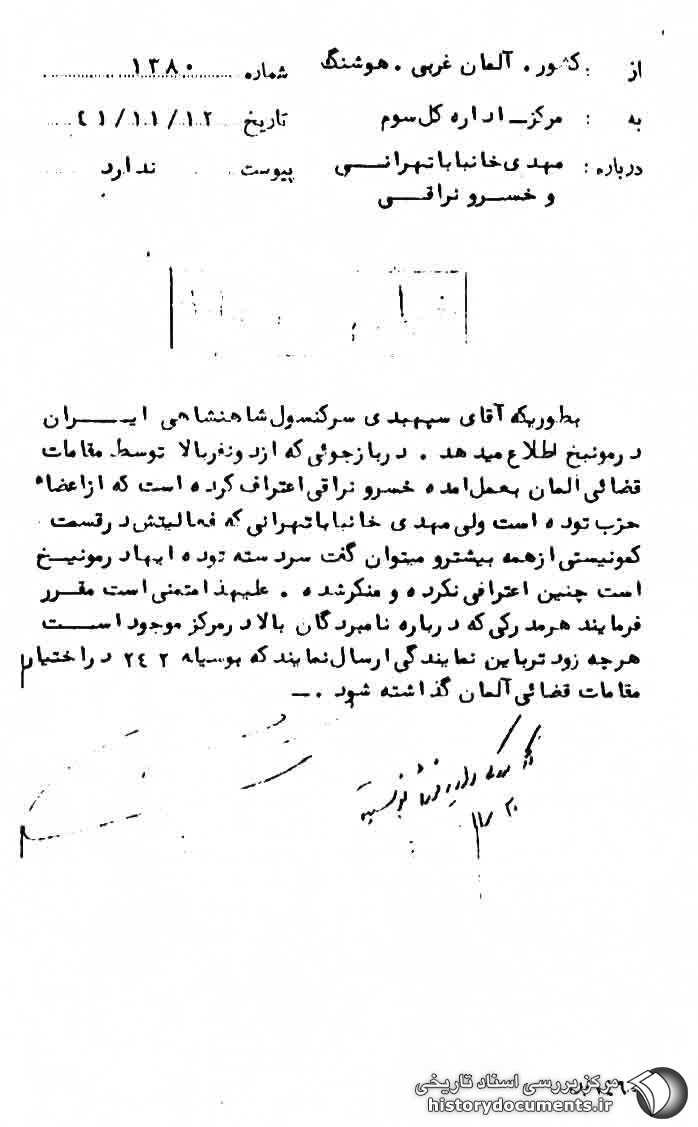 از : کشور . آلمان غربی . هوشنگ شماره ۱۳۸۰
به : مرکز ـ اداره کل سوم تاریخ ۴۱/۱۱/۱۲
درباره : مهدی خانباباتهرانـــی پیوست ندارد
و خســرو نراقــی
بطوریکه آقای سپهبدی سرکنسول شاهنشاهی ایــران
درمونیخ اطلاع میدهد . دربازجوئی که ازدونفربالا توسط مقامات
قضائی آلمان بعمل امده خسرو نراقی اعتراف کرده است که ازاعضاء
حزب توده است ولی مهدی خانباباتهرانی که فعالیتش درقسمت
کمونیستی ازهمه بیشترو میتوان گفت سردسته توده ایهادرمونیــخ
است چنین اعترافی نکرده و منکرشده . علیهذا متمنی است مقــرر
فرمایند هرمدرکی که درباره نامبردگان بالا درمرکز موجود اســت
هرچه زودترباین نمایندگی ارسال نمایند که بوسیله ۲۴۲ دراختیار
مقامات قضائی آلمان گذاشته شود . ــ
مرکز بررسی اسناد تاریخی
historydocuments.ir